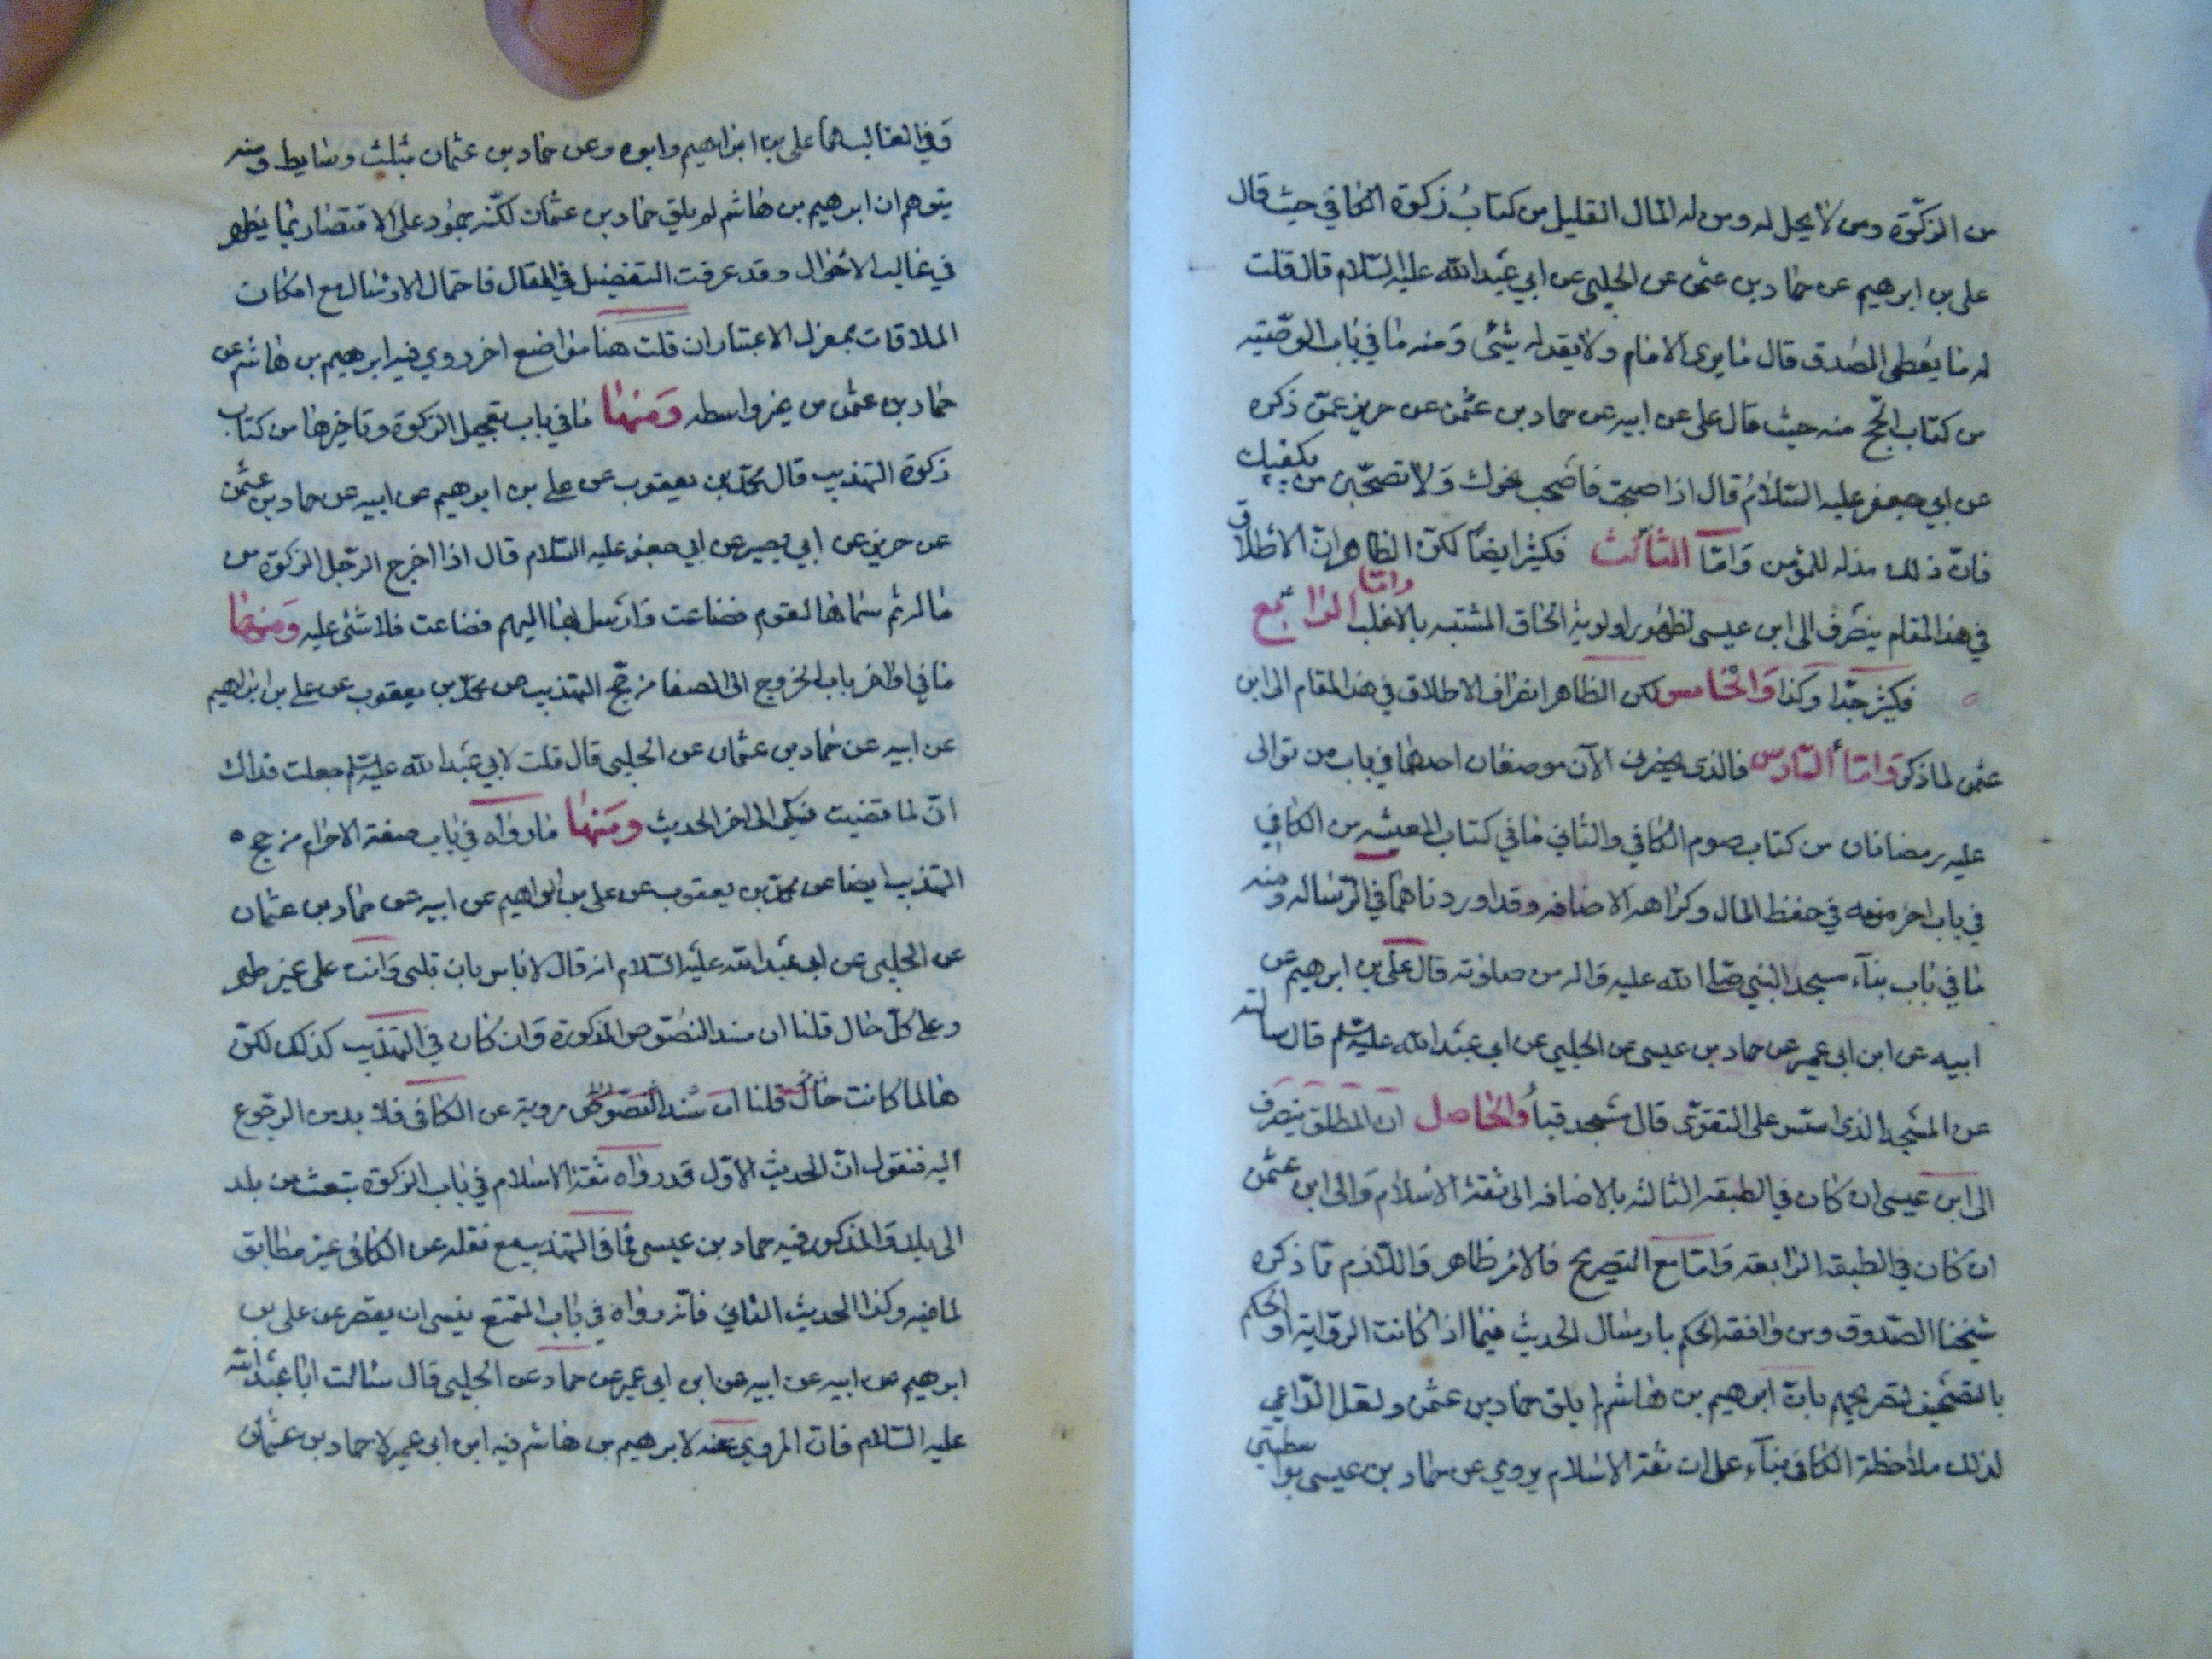 من الزكوة ومن لا يحل له ومن له المال القليل من كتاب زكوة الكافي حيث قال
علي بن ابرهيم عن حماد بن عثمن عن الحلبي عن ابي عبد الله عليه السلام قال قلت
له ما يعطى المصدق قال ما يرى الامام ولا يقدر له شئ ومنه ما في باب الوصية
من كتاب الحج منه حيث قال علي عن ابيه عن حماد بن عثمن عن حريز عمن ذكره
عن ابي جعفر عليه السلام قال اذا صحبت فاصحب نحوك ولا تصحبن من يكفيك
فان ذلك مذلة للمؤمن واما الثالث فكثير ايضا لكن الظاهر ان الاطلاق
في هذا المقام ينصرف الى ابن عيسى لظهور اولوية الحاق المشتبه بالاغلب واما الرابع
فكثير جدا وكذا والخامس لكن الظاهر انصراف الاطلاق في هذا المقام الى ابن
عثمن لما ذكر واما السادس فالذي يحضرني الآن موضعان احدهما في باب من توالى
عليه رمضانان من كتاب صوم الكافي والثاني ما في كتاب المعيشة من الكافي
في باب اخر منه في حفظ المال وكراهة الاضافه وقد اوردناهما في الرسالة ومنه
ما في باب بناء مسجد النبي صلى الله عليه واله من صلوته قال علي بن ابرهيم عن
ابيه عن ابن ابي عمير عن حماد بن عيسى عن الحلبي عن ابي عبد الله عليه السلم قال سالته
عن المسجد الذي اسس على التقوى قال مسجد قبا والحاصل ان المطلق ينصرف
الى ابن عيسى ان كان في الطبقة الثالثة بالاضافه الى ثقة الاسلام والى ابن عثمن
ان كان في الطبقة الرابعة واما مع التصريح فالامر ظاهر واللازم مما ذكره
شيخنا الصدوق ومن وافقه الحكم بارسال الحديث فيما اذا كانت الرواية او الحكم
بالتصحيف لتصريحهم بان ابرهيم بن هاشم لم يلق حماد بن عثمن ولعل الداعي
لذلك ملاحظة الكافي بناء على ان ثقة الاسلام يروي عن حماد بن عيسى بواسطتين
وفي الغالب هما علي بن ابراهيم وابوه وعن حماد بن عثمان بثلث وسايط ومنه
يتوهم ان ابرهيم بن هاشم لم يلق حماد بن عثمان لكنه بجود على الاقتصار بما يظهر
في غالب الاحوال وقد عرفت التفصيل في المقال فاحتمال الارسال مع امكان
الملاقات بمعزل الاعتبار ان قلت هنا مواضع اخر روي فيه ابرهيم بن هاشم عن
حماد بن عثمن من غير واسطه ومنها ما في باب تعجيل الزكوة وتاخيرها من كتاب
زكوة التهذيب قال محمد بن يعقوب عن علي بن ابرهيم عن ابيه عن حماد بن عثمن
عن حريز عن ابي بصير عن ابي جعفر عليه السلام قال اذا اخرج الرجل الزكوة من
ماله ثم سماها لقوم فضاعت وارسل بها اليهم فضاعت فلا شئ عليه ومنها
ما في اواخر باب الخروج الى الصفا من حج التهذيب عن محمد بن يعقوب عن علي بن ابراهيم
عن ابيه عن حماد بن عثمان عن الحلبي قال قلت لابي عبد الله عليه السلم جعلت فداك
اني لما قضيت نسكي الى اخر الحديث ومنها ما رواه في باب صفة الاحرام من حج
التهذيب ايضا عن محمد بن يعقوب عن علي بن ابراهيم عن ابيه عن حماد بن عثمان
عن الحلبي عن ابي عبد الله عليه السلام انه قال لا باس بان تلبي وانت على غير طهر
وعلى كل حال قلنا ان سند النصوص المذكورة وان كان في التهذيب كذلك لكن
هالما كانت حال قلنا ان سند النصوص مروية عن الكافي فلا بد من الرجوع
اليه فنقول ان الحديث الاول قد رواه ثقة الاسلام في باب الزكوة تبعث من بلد
الى بلد والمذكور فيه حماد بن عيسى فما في التهذيب مع نقله عن الكافي غير مطابق
لما فيه وكذا الحديث الثاني فانه رواه في باب المتمتع ينسى ان يقصر عن علي بن
ابرهيم عن ابيه عن ابيه عن ابن ابي عمير عن حماد عن الحلبي قال سالت ابا عبد الله
عليه السلام فان المروي عنه لابرهيم بن هاشم فيه ابن ابي عمير لا حماد بن عثمان